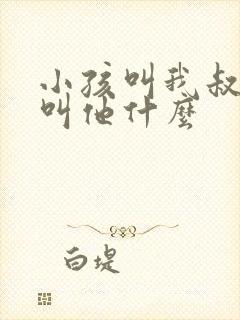 小孩叫我叔
叫他什麼
白堤